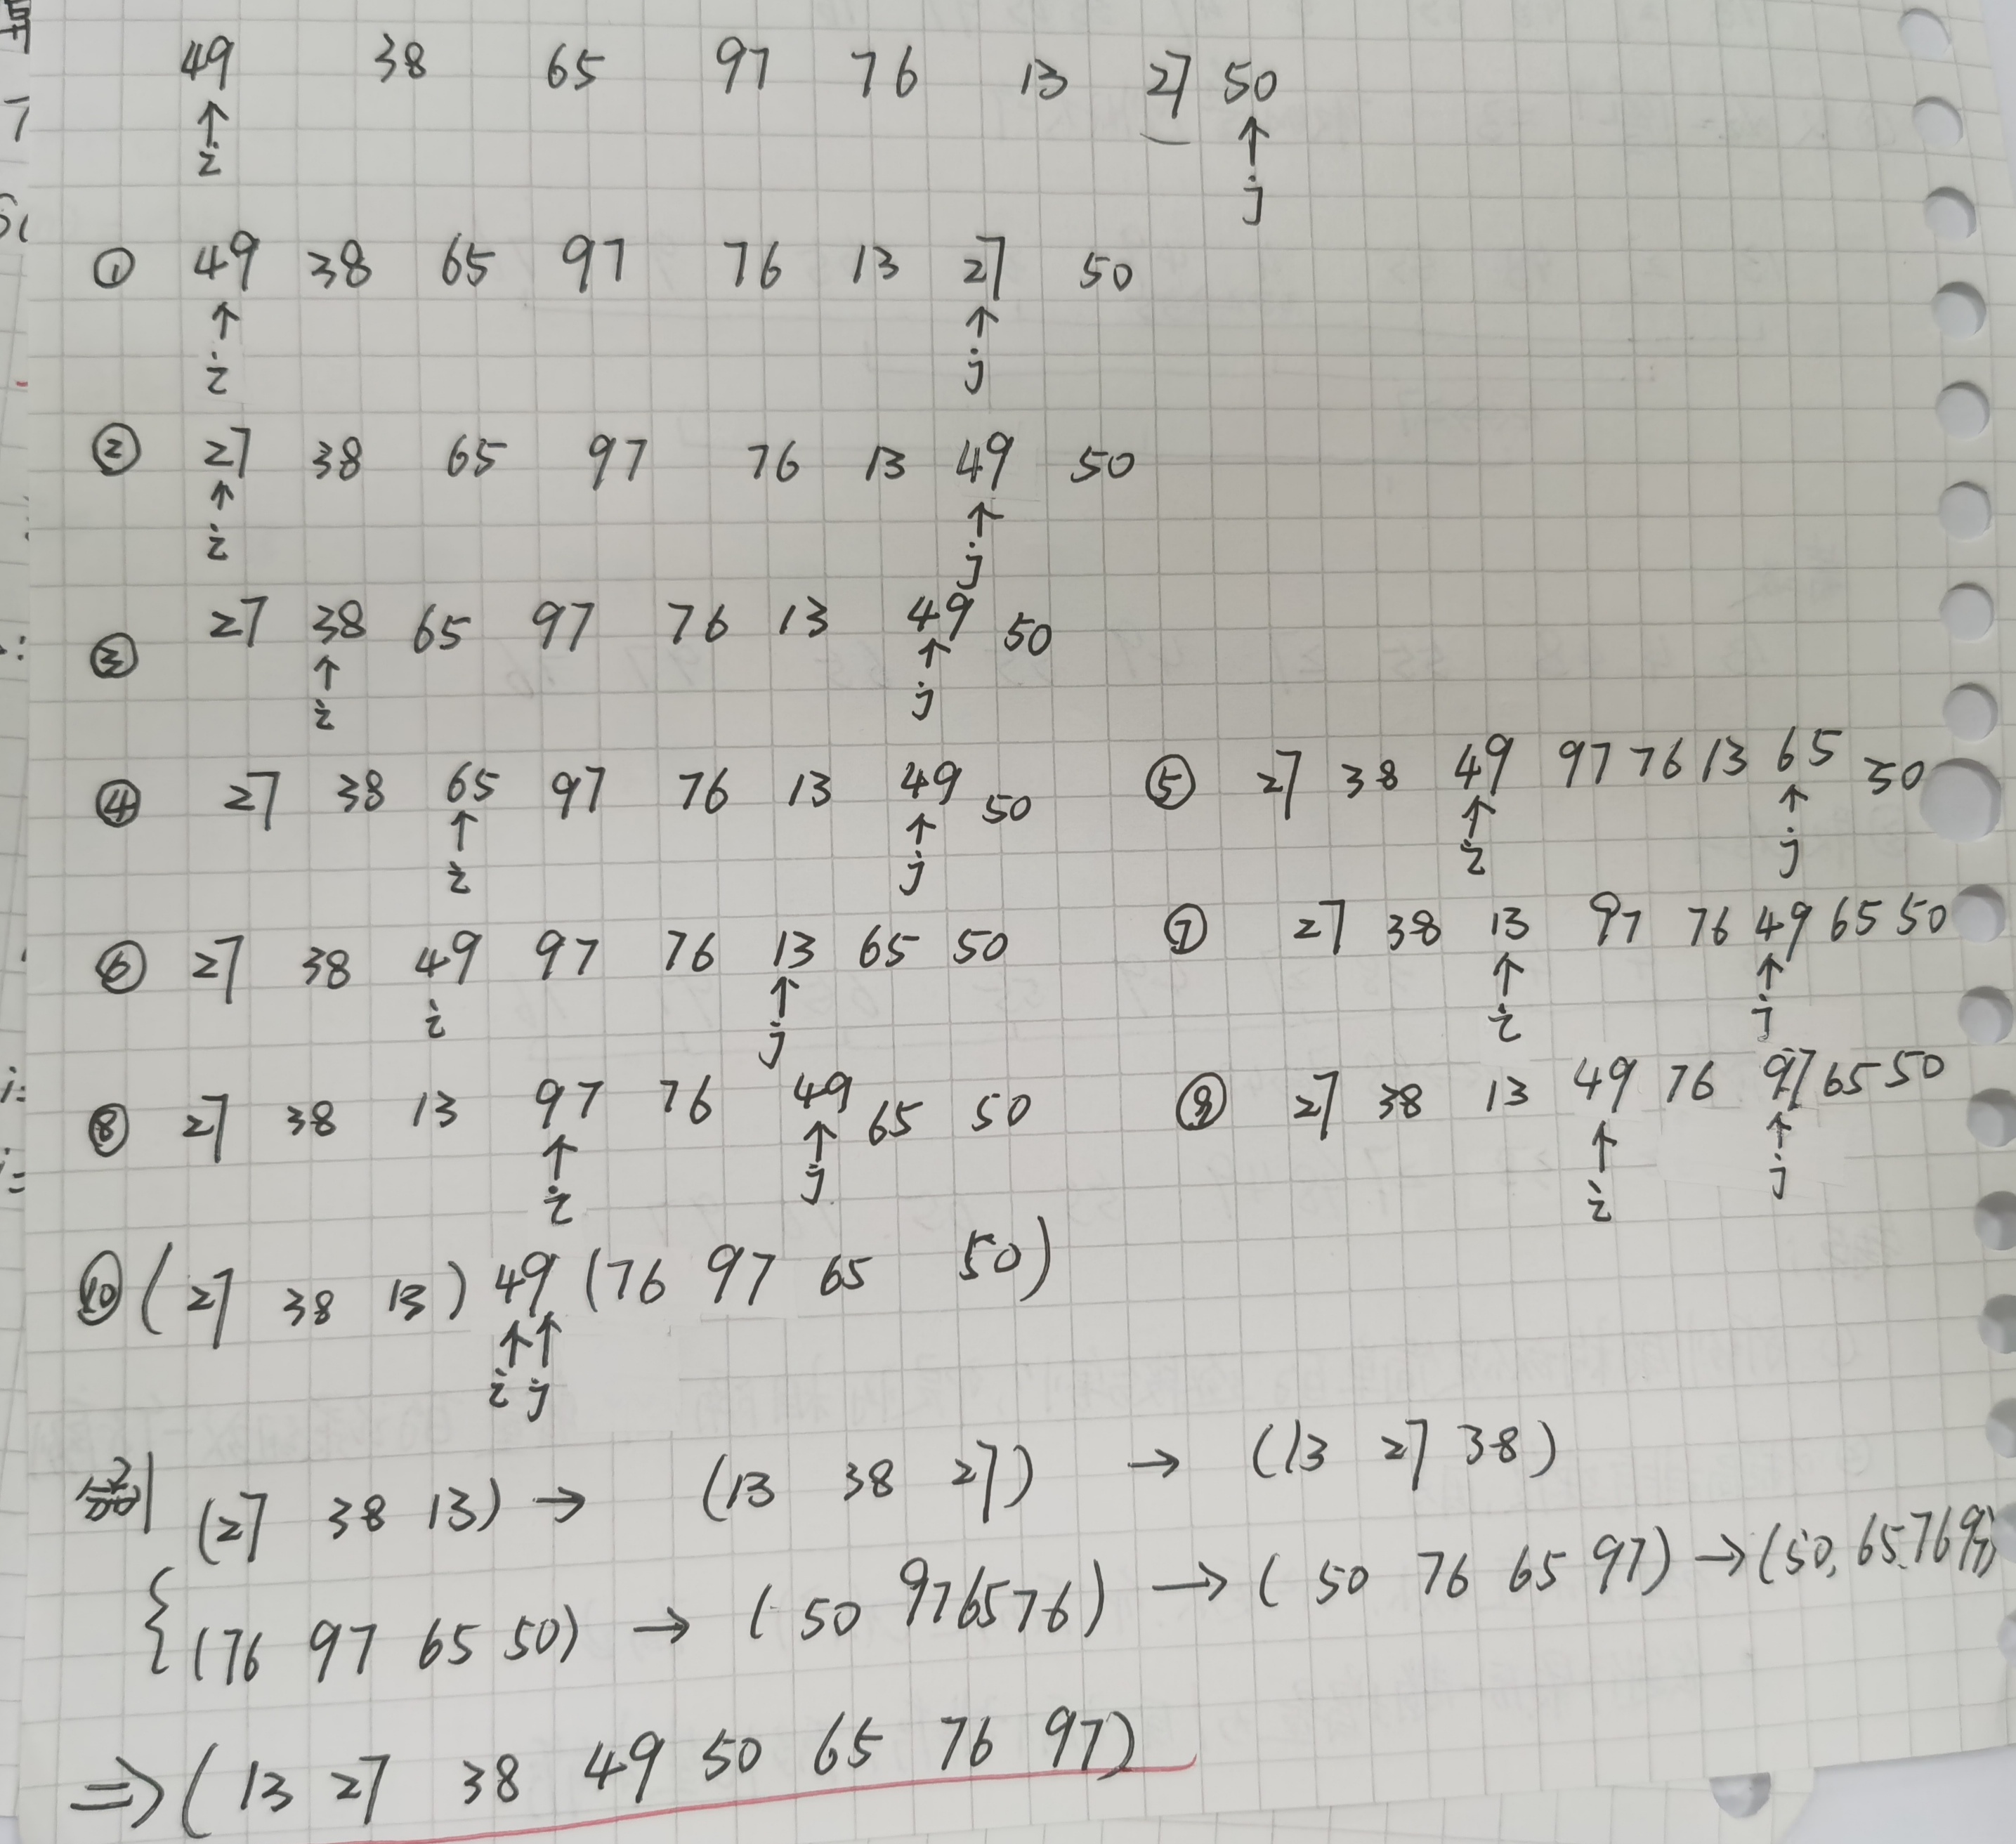 49 38 65 97 76 13 27 50
↑ ↑
i j
① 49 38 65 97 76 13 27 50
↑ ↑
i j
② 27 38 65 97 76 13 49 50
↑ ↑
i j
③ 27 38 65 97 76 13 49 50
↑ ↑
i j
④ 27 38 65 97 76 13 49 50
↑ ↑
i j
⑤ 27 38 49 97 76 13 65 50
↑ ↑
i j
⑥ 27 38 49 97 76 13 65 50
↑
i j
⑦ 27 38 13 97 76 49 65 50
↑ ↑
i j
⑧ 27 38 13 97 76 49 65 50
↑ ↑
i j
⑨ 27 38 13 49 76 97 65 50
↑ ↑
i j
⑩ (27 38 13) 49 (76 97 65 50)
↑↑
i j
(27 38 13) → (13 38 27) → (13 27 38)
{(76 97 65 50) → (50 97 65 76) → (50 76 65 97) → (50, 65 76 97)
⇒ (13 27 38 49 50 65 76 97)